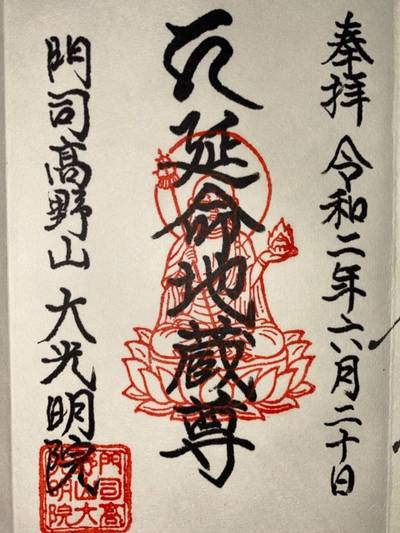 奉拝 令和二年六月二十日
𑖮 延命地蔵尊
門司髙野山 大光明院
門司高
野山大
光明院